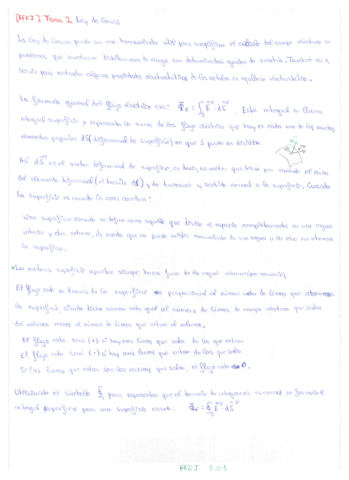 [FFEI] Tema 2 Ley de Gauss
La Ley de Gauss puede ser una herramienta útil para simplificar el cálculo del campo eléctrico en
problemas que involucran distribuciones de carga con determinados grados de simetría. También va a
servir para entender algunas propiedades electrostáticas de los metales en equilibrio electrostático.
La fórmula general del flujo eléctrico es: Φ = ∫ E · dS. Esta integral se llama
integral superficie y representa la suma de los flujos eléctricos que hay en cada uno de los
elementos pequeños dS (diferencial de superficie) en que se puede dividir.
Así dS es el vector diferencial de superficie, es decir, un vector que tiene por módulo el área
del elemento diferencial (el tamaño dS) y de dirección y sentido normal a la superficie. Cuando
la superficie es
Una superficie cerrada se define como aquella que divide el espacio completamente en una región
interior y otra exterior, de modo que no puede moverse de una región a la otra sin atravesar
la superficie.
El flujo neto a través de la superficie es proporcional al número neto de líneas que atraviesan
la superficie, siendo dicho número neto igual al número de líneas de campo eléctrico que salen
del volumen menos el número de líneas que entran al volumen.
El flujo neto será (+) si hay más líneas que salen de las que entran
El flujo neto será (-) si hay más líneas que entran de las que salen
Si las líneas que entran son las mismas que salen, el flujo neto es 0.
Utilizando el símbolo ∮ para representar que el dominio de integración es cerrado se formula el
integral superficie para una superficie cerrada: Φ = ∮ E · dS
FFEI 2.01